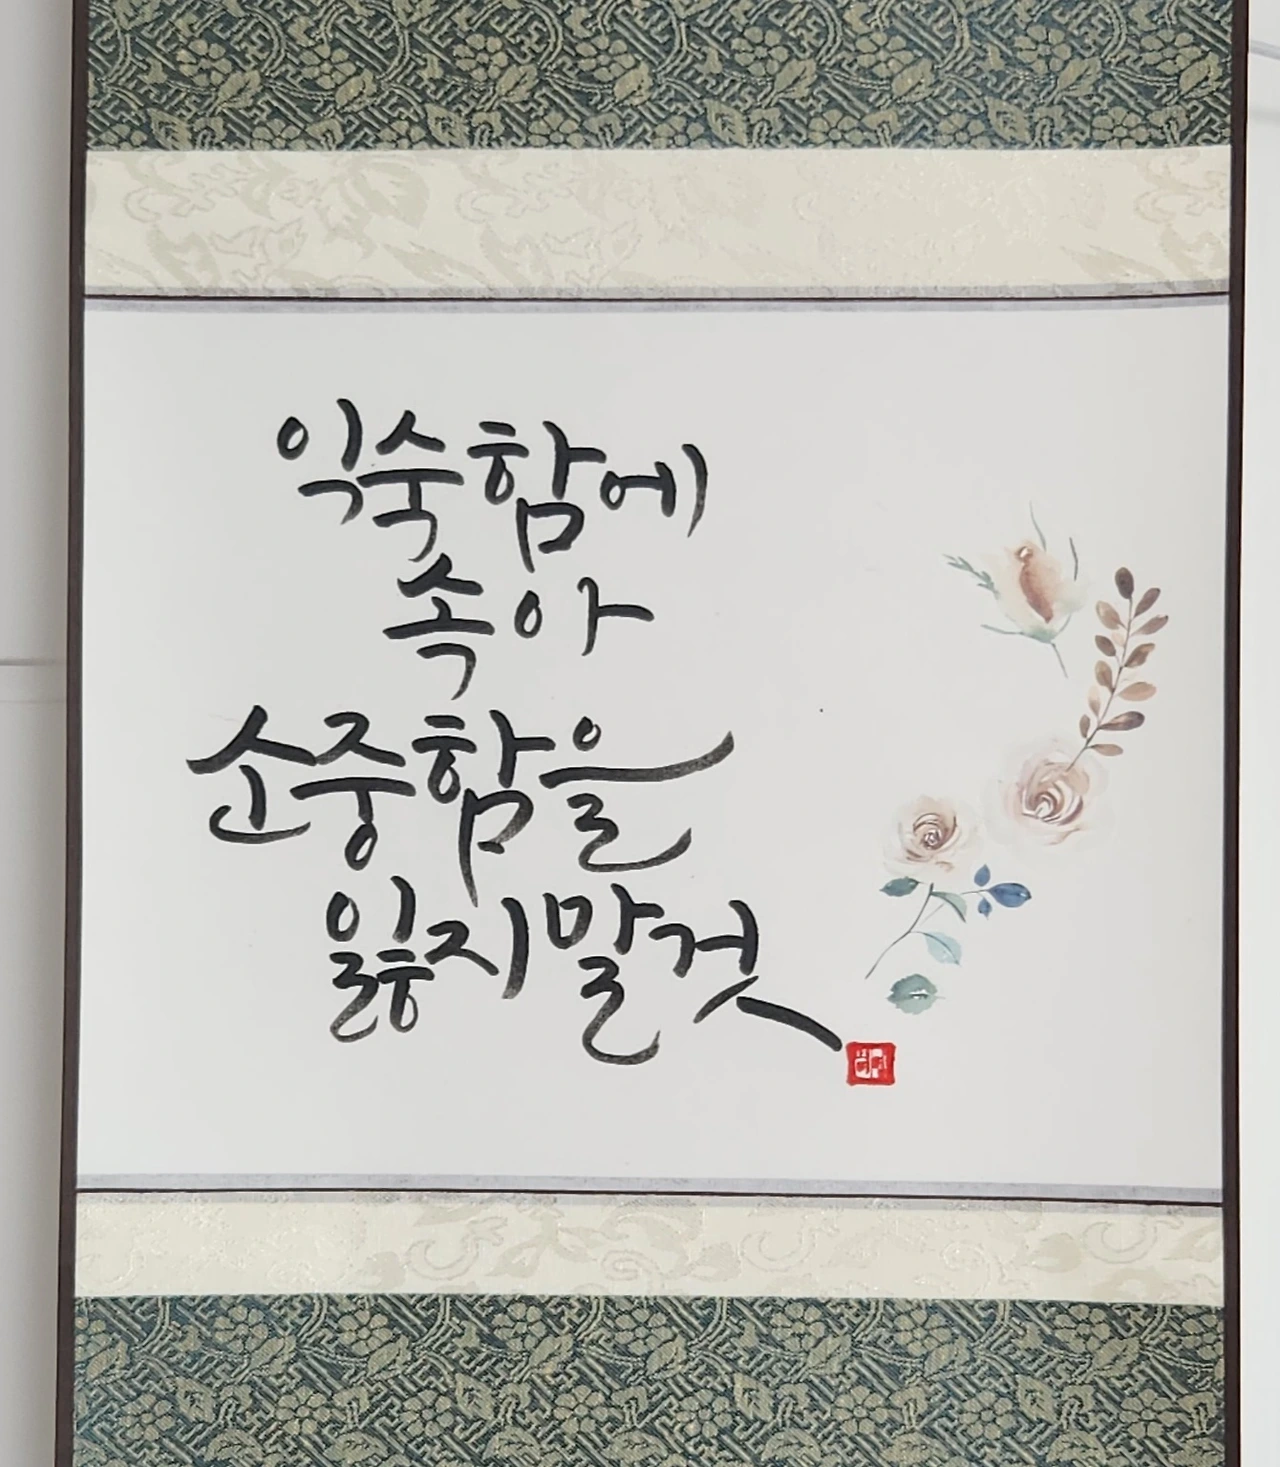 익숙함에
속아
소중함을
잃지말것